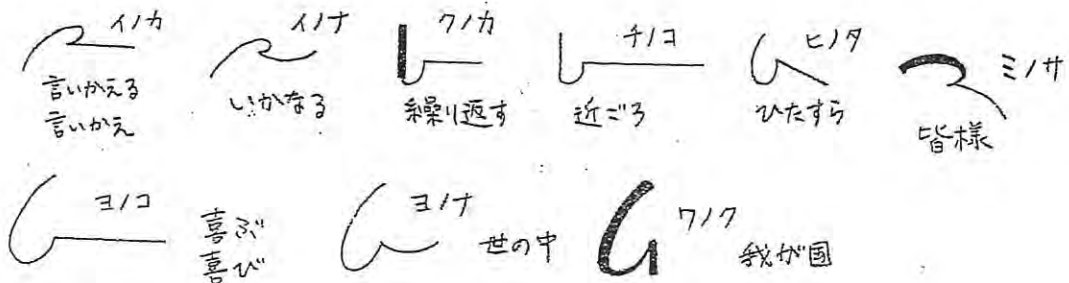 イノカ
言いかえる
言いかえ
イノナ
いかなる
クノカ
繰り返す
チノコ
近ごろ
ヒノタ
ひたすら
ミノサ
皆様
ヨノコ
喜ぶ
喜び
ヨノナ
世の中
ワノク
我が国